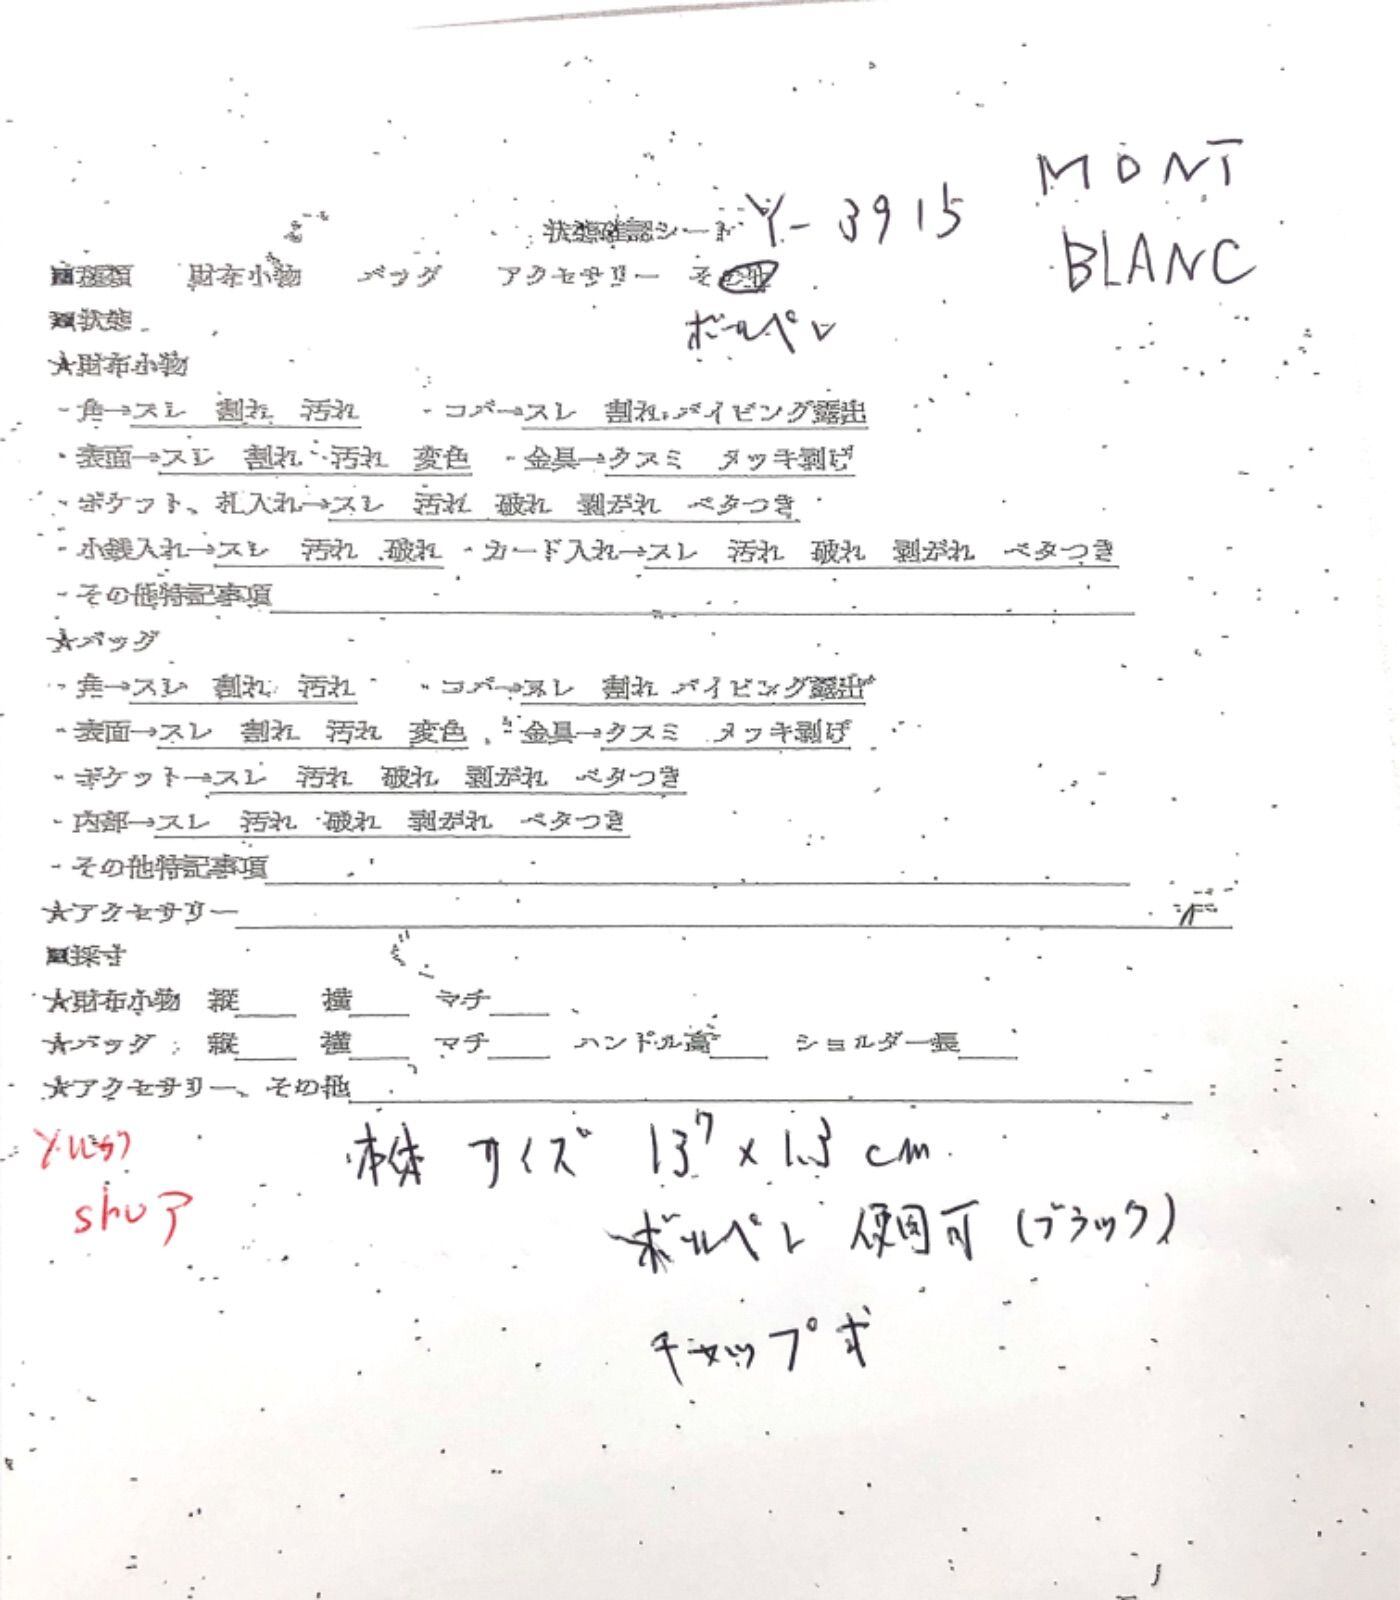 MONT
状態確認シート Y-3915
BLANC
■種類 財布小物 バッグ アクセサリー その他
■状態
ボールペン
★財布小物
・角→スレ 割れ 汚れ ・コバ→スレ 割れ パイピング露出
・表面→スレ 割れ 汚れ 変色 ・金具→クスミ メッキ剥げ
・ポケット、札入れ→スレ 汚れ 破れ 剥がれ ベタつき
・小銭入れ→スレ 汚れ 破れ ・カード入れ→スレ 汚れ 破れ 剥がれ ベタつき
・その他特記事項
★バッグ
・角→スレ 割れ 汚れ ・コバ→スレ 割れ パイピング露出
・表面→スレ 割れ 汚れ 変色 ・金具→クスミ メッキ剥げ
・ポケット→スレ 汚れ 破れ 剥がれ ベタつき
・内部→スレ 汚れ 破れ 剥がれ ベタつき
・その他特記事項
★アクセサリー
■採寸
★財布小物 縦 横 マチ
★バッグ 縦 横 マチ ハンドル高 ショルダー長
★アクセサリー、その他
本体 サイズ 13.7 x 1.3 cm
ボールペン 使用可 (ブラック)
キャップ式